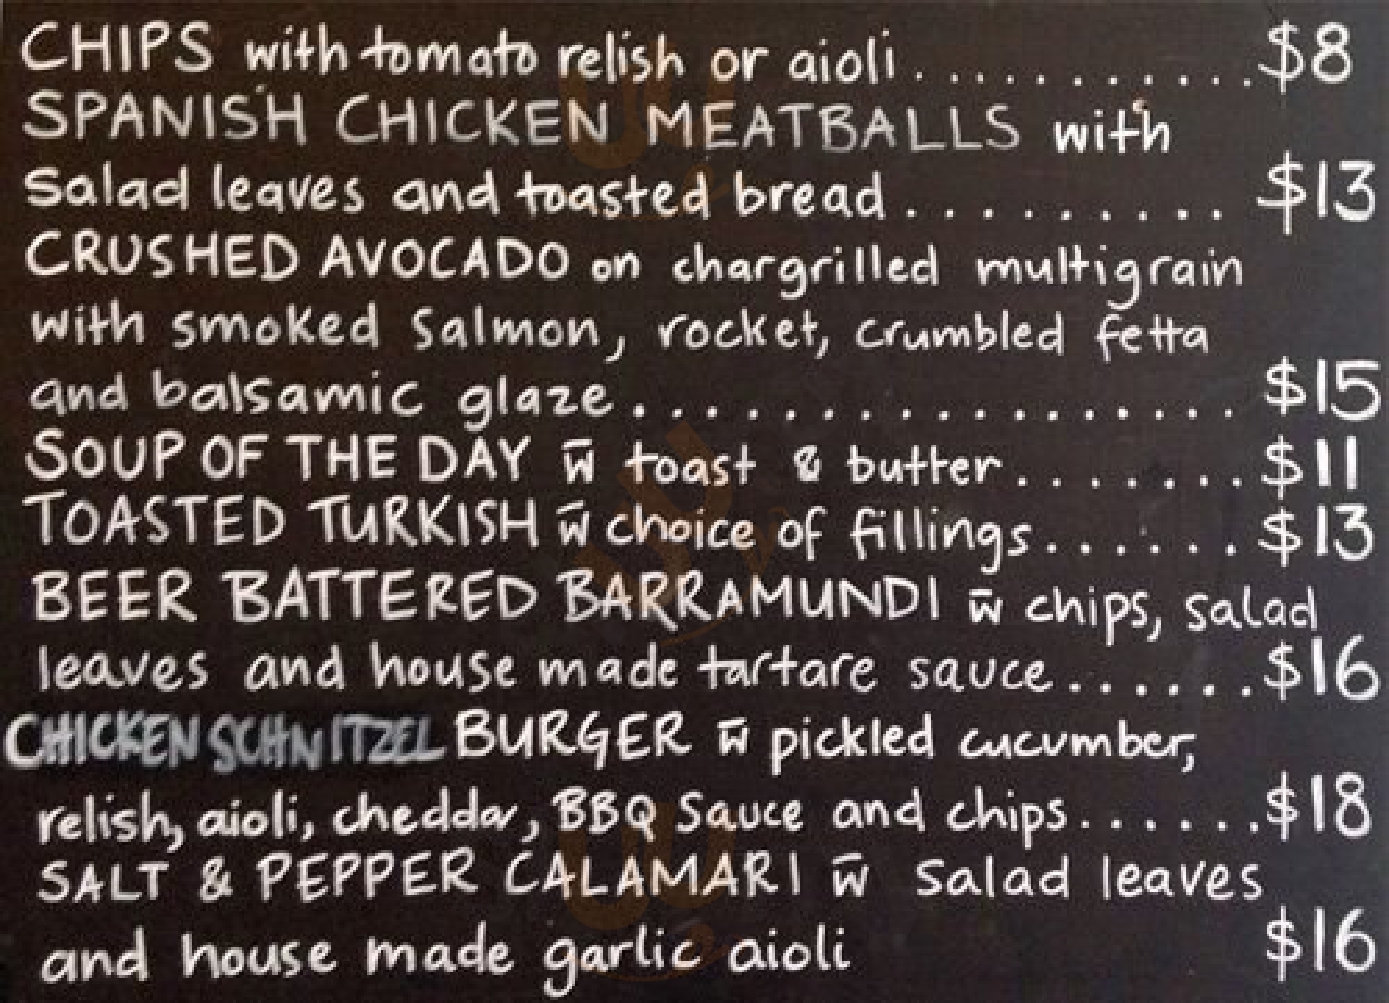 CHIPS with tomato relish or aioli............$8
SPANISH CHICKEN MEATBALLS with
Salad leaves and toasted bread.......... $13
CRUSHED AVOCADO on chargrilled multigrain
with smoked Salmon, rocket, crumbled fetta
and balsamic glaze................. $15
SOUP OF THE DAY w̄ toast & butter.......$11
TOASTED TURKISH w̄ choice of fillings......$13
BEER BATTERED BARRAMUNDI w̄ chips, salad
leaves and house made tartare sauce......$16
CHICKEN SCHNITZEL BURGER w̄ pickled cucumber,
relish, aioli, cheddar, BBQ Sauce and chips......$18
SALT & PEPPER CALAMARI w̄ Salad leaves
and house made garlic aioli $16